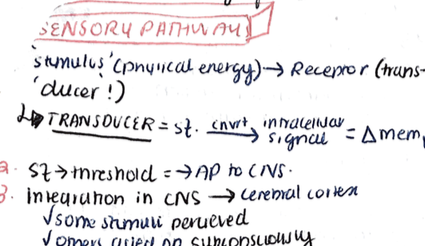 SENSORY PATHWAY
'stimulus' (physical energy) → Receptor (trans-
'ducer!)
↳ TRANSDUCER = st. cnvrt → intracellular signal = Δ mem
2. St → threshold = → AP to CNS.
3. integration in CNS → cerebral cortex
√ some stimuli perceived
√ others acted on subconsciously